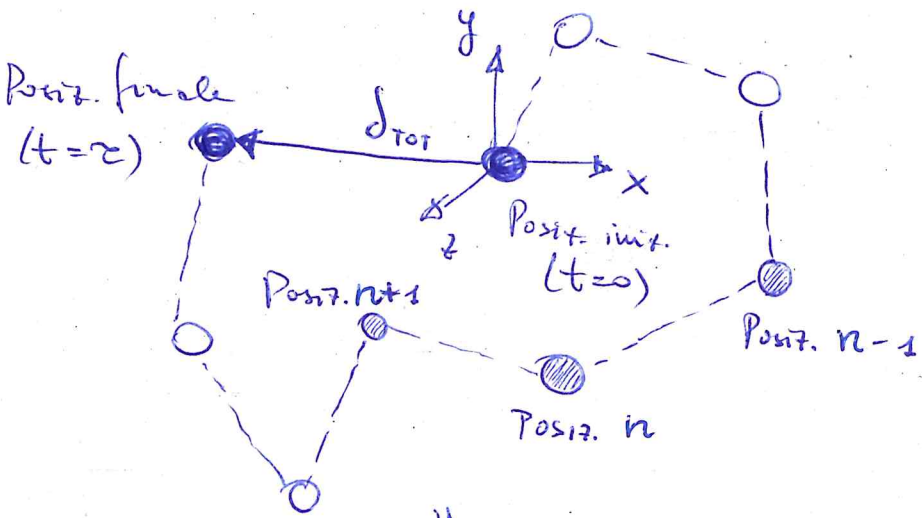 y
Posiz. finale
(t=τ)
δTOT
x
z
Posiz. iniz.
(t=0)
Posiz. n+1
Posiz. n-1
Posiz. n